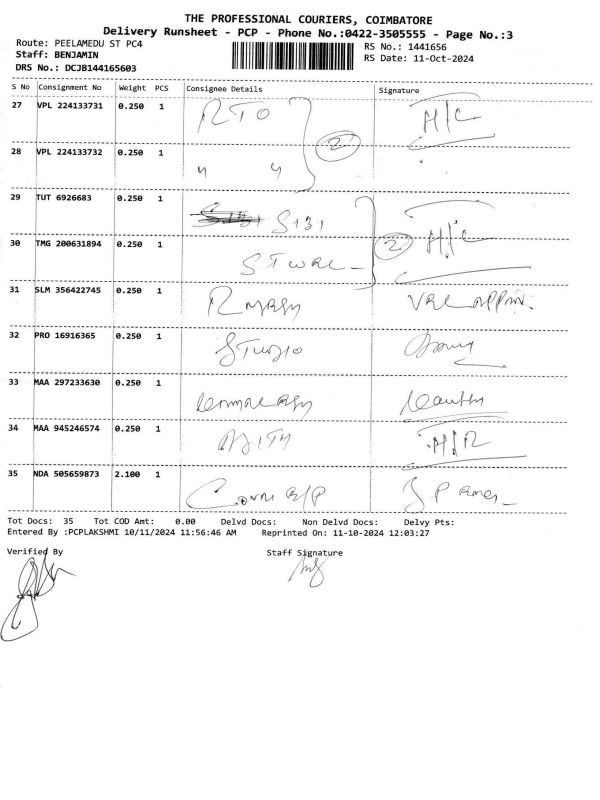 THE PROFESSIONAL COURIERS, COIMBATORE
Delivery Runsheet - PCP - Phone No.:0422-3505555 - Page No.:3
Route: PEELAMEDU ST PC4
RS No.: 1441656
Staff: BENJAMIN
RS Date: 11-Oct-2024
DRS No.: DCJB144165603
S No Consignment No Weight PCS Consignee Details Signature
27 VPL 224133731 0.250 1 RTO H/C
2
28 VPL 224133732 0.250 1 " "
29 TUT 6926683 0.250 1 S131
2 H/C
30 TMG 200631894 0.250 1
31 SLM 356422745 0.250 1
32 PRO 16916365 0.250 1 STUDIO
33 MAA 297233630 0.250 1
34 MAA 945246574 0.250 1 H/R
35 NDA 505659873 2.100 1
Tot Docs: 35 Tot COD Amt: 0.00 Delvd Docs: Non Delvd Docs: Delvy Pts:
Entered By :PCPLAKSHMI 10/11/2024 11:56:46 AM Reprinted On: 11-10-2024 12:03:27
Verified By Staff Signature